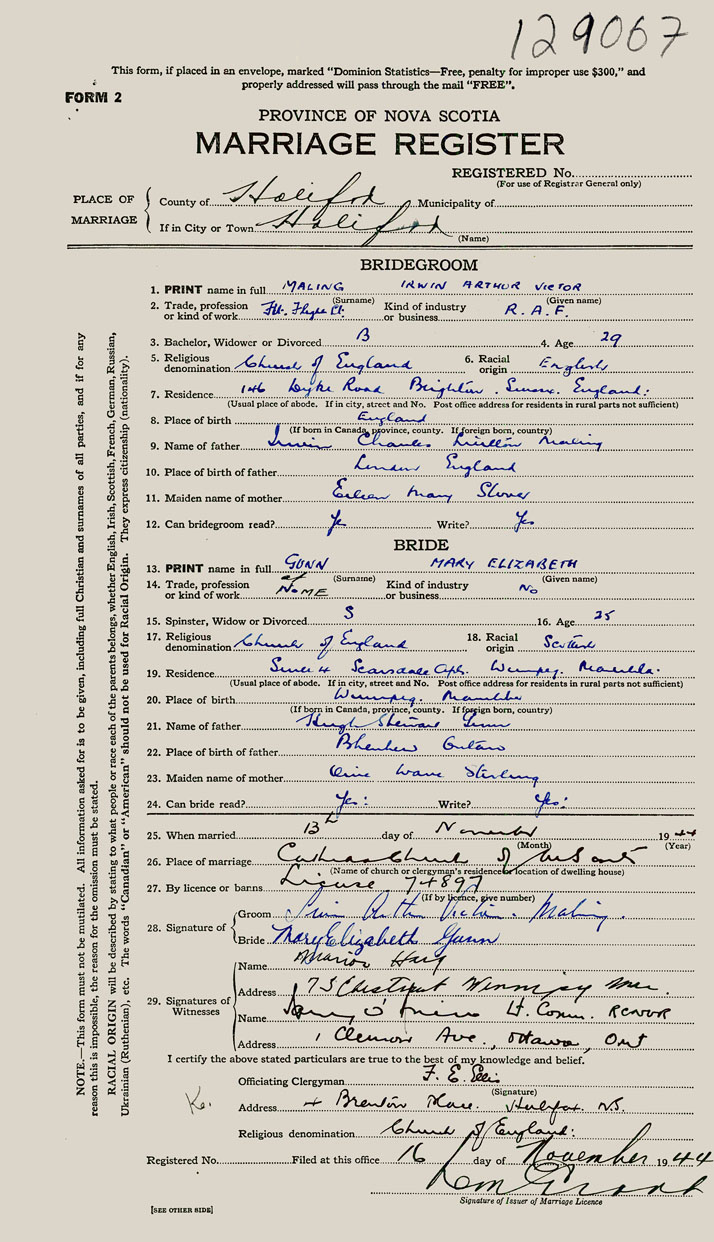 129067
This form, if placed in an envelope, marked "Dominion Statistics—Free, penalty for improper use $300," and
properly addressed will pass through the mail "FREE".
FORM 2
PROVINCE OF NOVA SCOTIA
MARRIAGE REGISTER
REGISTERED No.
(For use of Registrar General only)
PLACE OF MARRIAGE
County of Halifax Municipality of
If in City or Town Halifax
(Name)
BRIDEGROOM
1. PRINT name in full MALING IRWIN ARTHUR VICTOR
(Surname) (Given name)
2. Trade, profession or kind of work Flt. Kind of industry or business R.A.F.
3. Bachelor, Widower or Divorced B 4. Age 29
5. Religious denomination Church of England 6. Racial origin English
7. Residence 146 Dyke Road Brighton. Sussex. England:
(Usual place of abode. If in city, street and No. Post office address for residents in rural parts not sufficient)
8. Place of birth England
(If born in Canada, province, county. If foreign born, country)
9. Name of father Irwin Charles Maling
10. Place of birth of father London England
11. Maiden name of mother Eileen Mary
12. Can bridegroom read? Yes Write? Yes
BRIDE
13. PRINT name in full GUNN MARY ELIZABETH
(Surname) (Given name)
14. Trade, profession or kind of work at HOME Kind of industry or business No
15. Spinster, Widow or Divorced S 16. Age 25
17. Religious denomination Church of England 18. Racial origin Scottish
19. Residence Suite 4 Scarsdale Apts. Winnipeg. Manitoba.
(Usual place of abode. If in city, street and No. Post office address for residents in rural parts not sufficient)
20. Place of birth Winnipeg. Manitoba
(If born in Canada, province, county. If foreign born, country)
21. Name of father Hugh Stewart Gunn
22. Place of birth of father
23. Maiden name of mother Stirling
24. Can bride read? Yes: Write? Yes:
25. When married 13th day of November 1944
(Month) (Year)
26. Place of marriage Cathedral Church of
(Name of church or clergyman's residence or location of dwelling house)
27. By licence or banns License 74897
(If by licence, give number)
28. Signature of
Groom Irwin Arthur Victor. Maling.
Bride Mary Elizabeth Gunn
29. Signatures of Witnesses
Name Marion Haig
Address 73 Chestnut Winnipeg Man.
Name Lt. Comm. RCNVR
Address 1 Clemow Ave., Ottawa, Ont
I certify the above stated particulars are true to the best of my knowledge and belief.
Officiating Clergyman F. E. Ellis
(Signature)
Address 4 Brenton Place. Halifax. N.S.
Religious denomination Church of England:
Registered No. Filed at this office 16 day of November 1944
Signature of Issuer of Marriage Licence
[SEE OTHER SIDE]
NOTE.—This form must not be mutilated. All information asked for is to be given, including full Christian and surnames of all parties, and if for any
reason this is impossible, the reason for the omission must be stated.
RACIAL ORIGIN will be described by stating to what people or race each of the parents belongs, whether English, Irish, Scottish, French, German, Russian,
Ukrainian (Ruthenian), etc. The words "Canadian" or "American" should not be used for Racial Origin. They express citizenship (nationality).